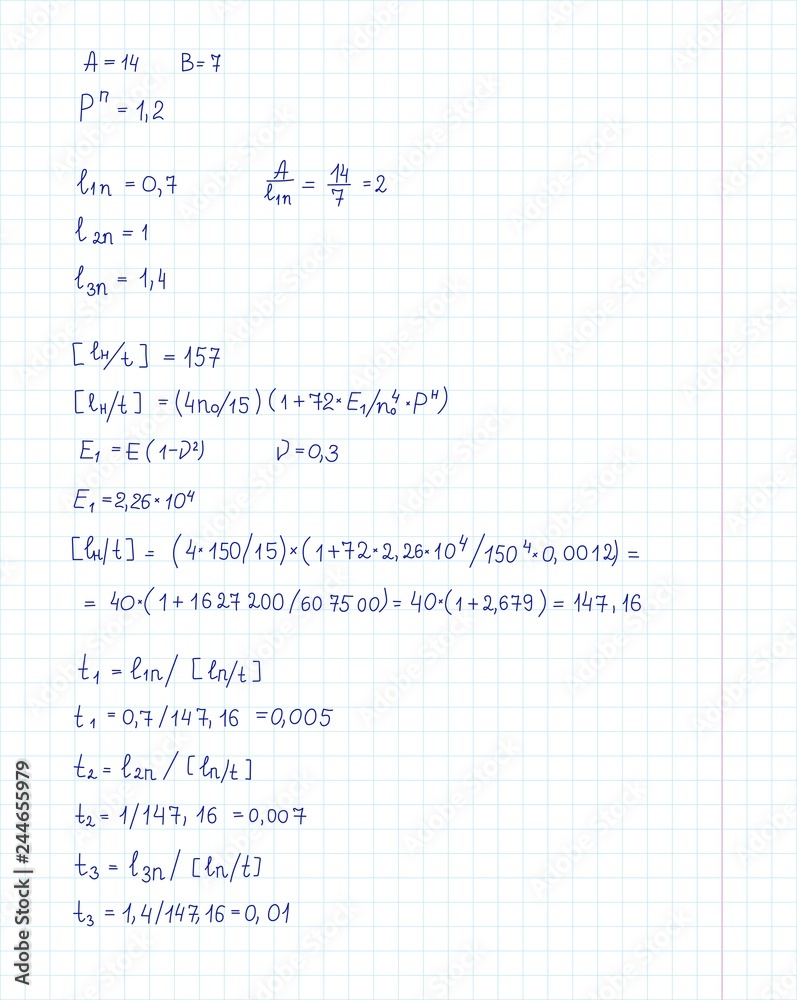 A = 14 B = 7
Pᴨ = 1,2
l₁n = 0,7 A/l₁n = 14/7 = 2
l₂n = 1
l₃n = 1,4
[lн/t] = 157
[lн/t] = (4n₀/15)(1+72*E₁/n₀⁴*Pᴴ)
E₁ = E(1-ν²) ν = 0,3
E₁ = 2,26*10⁴
[lн/t] = (4*150/15)*(1+72*2,26*10⁴/150⁴*0,0012) =
= 40*(1+1627200/607500) = 40*(1+2,679) = 147,16
t₁ = l₁n/[ln/t]
t₁ = 0,7/147,16 = 0,005
t₂ = l₂n/[ln/t]
t₂ = 1/147,16 = 0,007
t₃ = l₃n/[ln/t]
t₃ = 1,4/147,16 = 0,01
Adobe Stock | #244655979
Adobe Stock